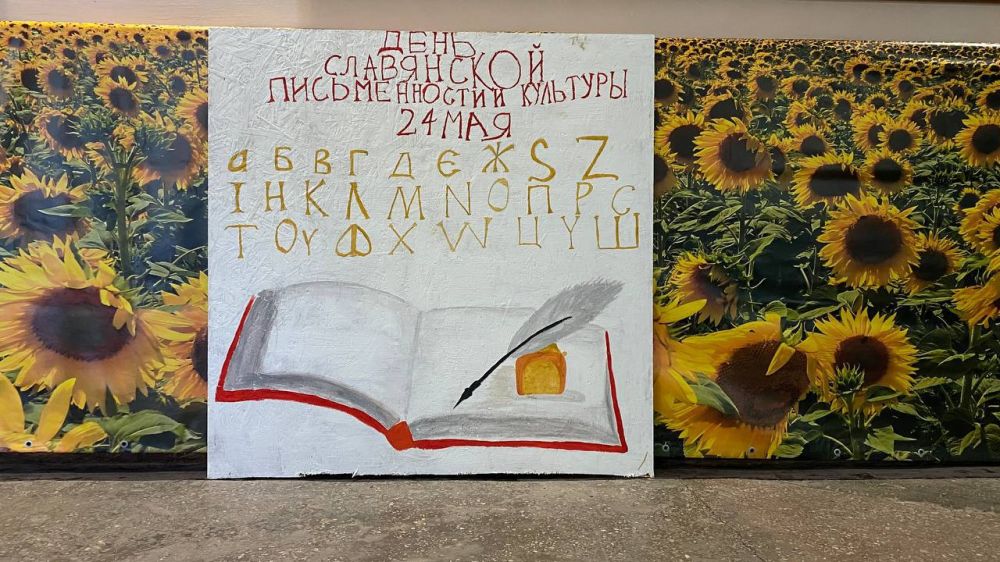 ДЕНЬ
СЛАВЯНСКОЙ
ПИСЬМЕННОСТИ И КУЛЬТУРЫ
24 МАЯ
а Б В Г Д Є Ж Ѕ Z
І Н К Л М N О П Р С
Т ОY Ф Х W Ц Y Ш